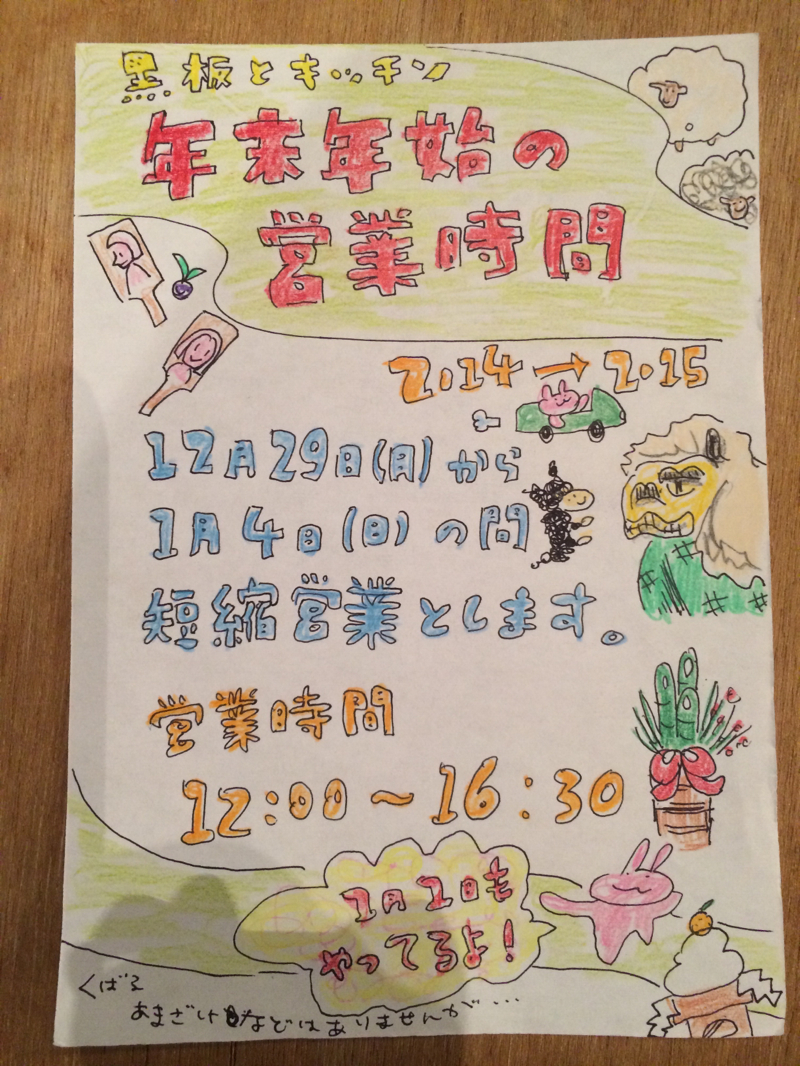 黒板とキッチン
年末年始の
営業時間
2014→2015
12月29日(月)から
1月4日(日)の間
短縮営業とします。
営業時間
12:00〜16:30
1月1日も
やってるよ!
くばる
あまざけなどはありませんが…